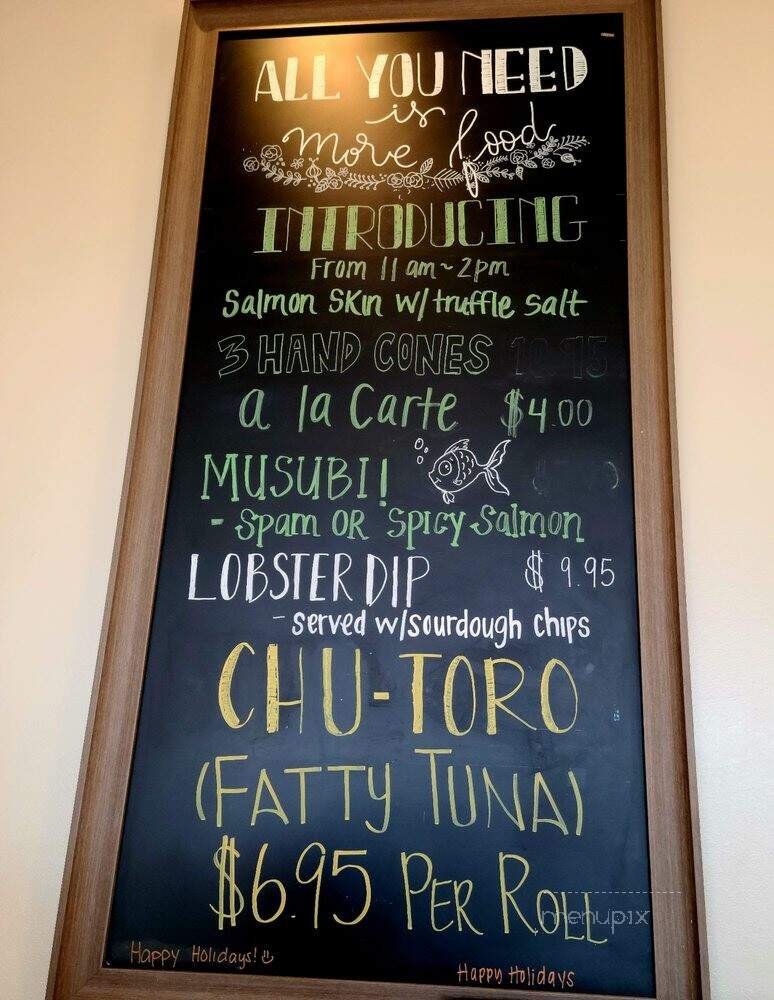 ALL YOU NEED
is
more food
INTRODUCING
From 11 am ~ 2pm
Salmon Skin w/ truffle salt
3 HAND CONES
a la Carte $4.00
MUSUBI!
- Spam OR Spicy Salmon
LOBSTER DIP $ 9.95
- served w/sourdough chips
CHU-TORO
(FATTY TUNA)
$6.95 PER ROLL
menupix
Happy Holidays!
Happy Holidays